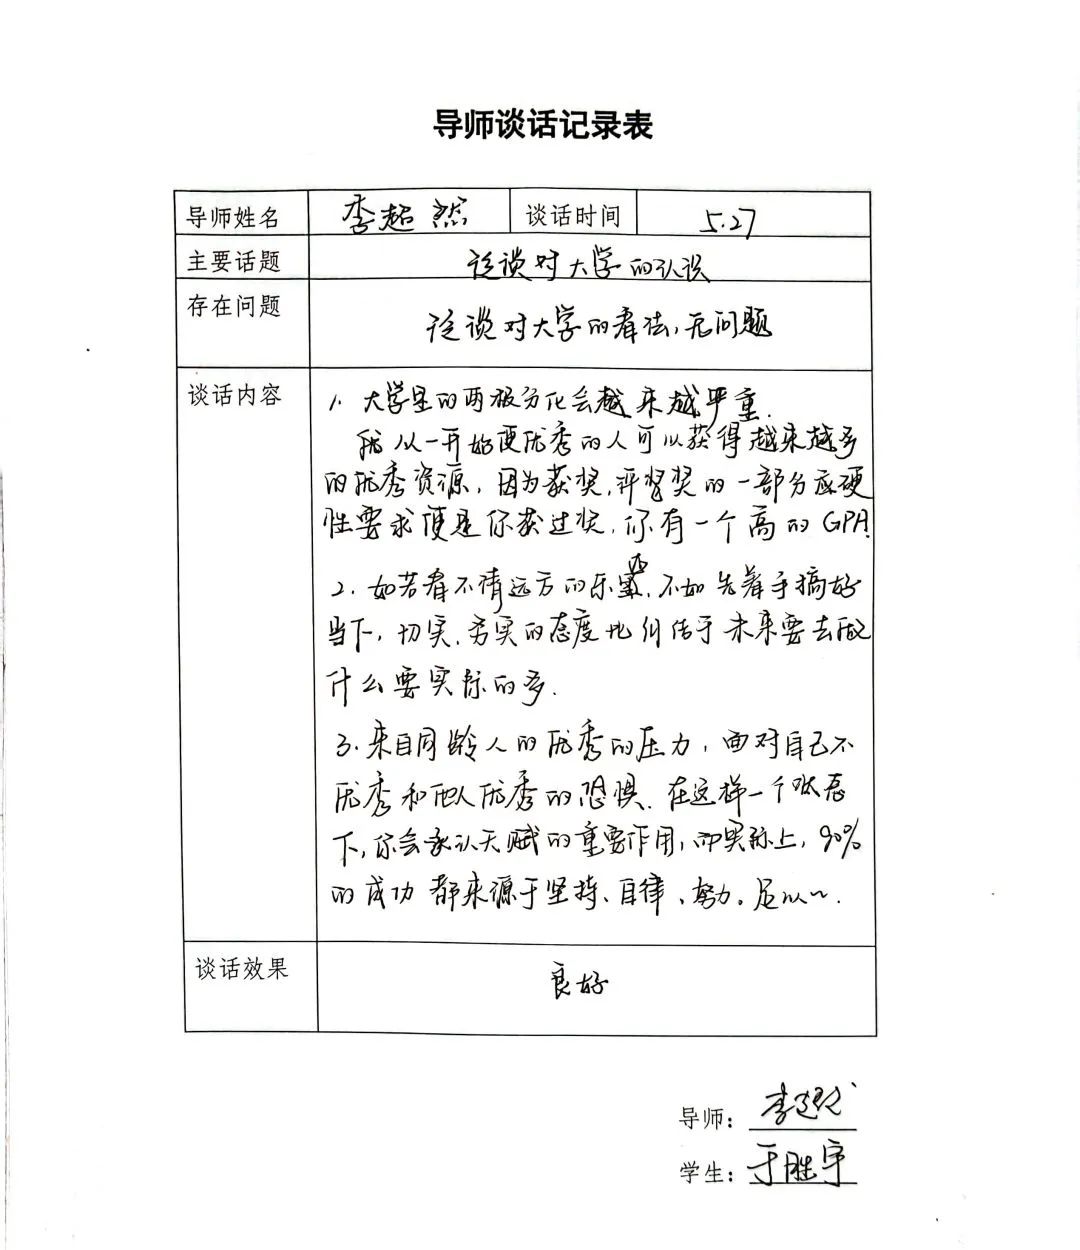 导师谈话记录表
导师姓名 李超然 谈话时间 5.27
主要话题 论谈对大学的认识
存在问题 论谈对大学的看法,无问题
谈话内容 1. 大学里的两极分化会越来越严重.
从一开始便优秀的人可以获得越来越多
的优秀资源, 因为获奖,评奖的一部分硬
性要求便是你获过奖,你有一个高的GPA.
2. 如若看不清远方的东西,不如先着手搞好
当下, 切实、务实的态度比纠结于未来要去做
什么要实际的多.
3. 来自同龄人的优秀的压力, 面对自己不
优秀和他人优秀的恐惧. 在这样一个状态
下,你会承认天赋的重要作用,而实际上, 90%
的成功都来源于坚持、自律、努力。足以~.
谈话效果 良好
导师: 李超然
学生: 于胜宇